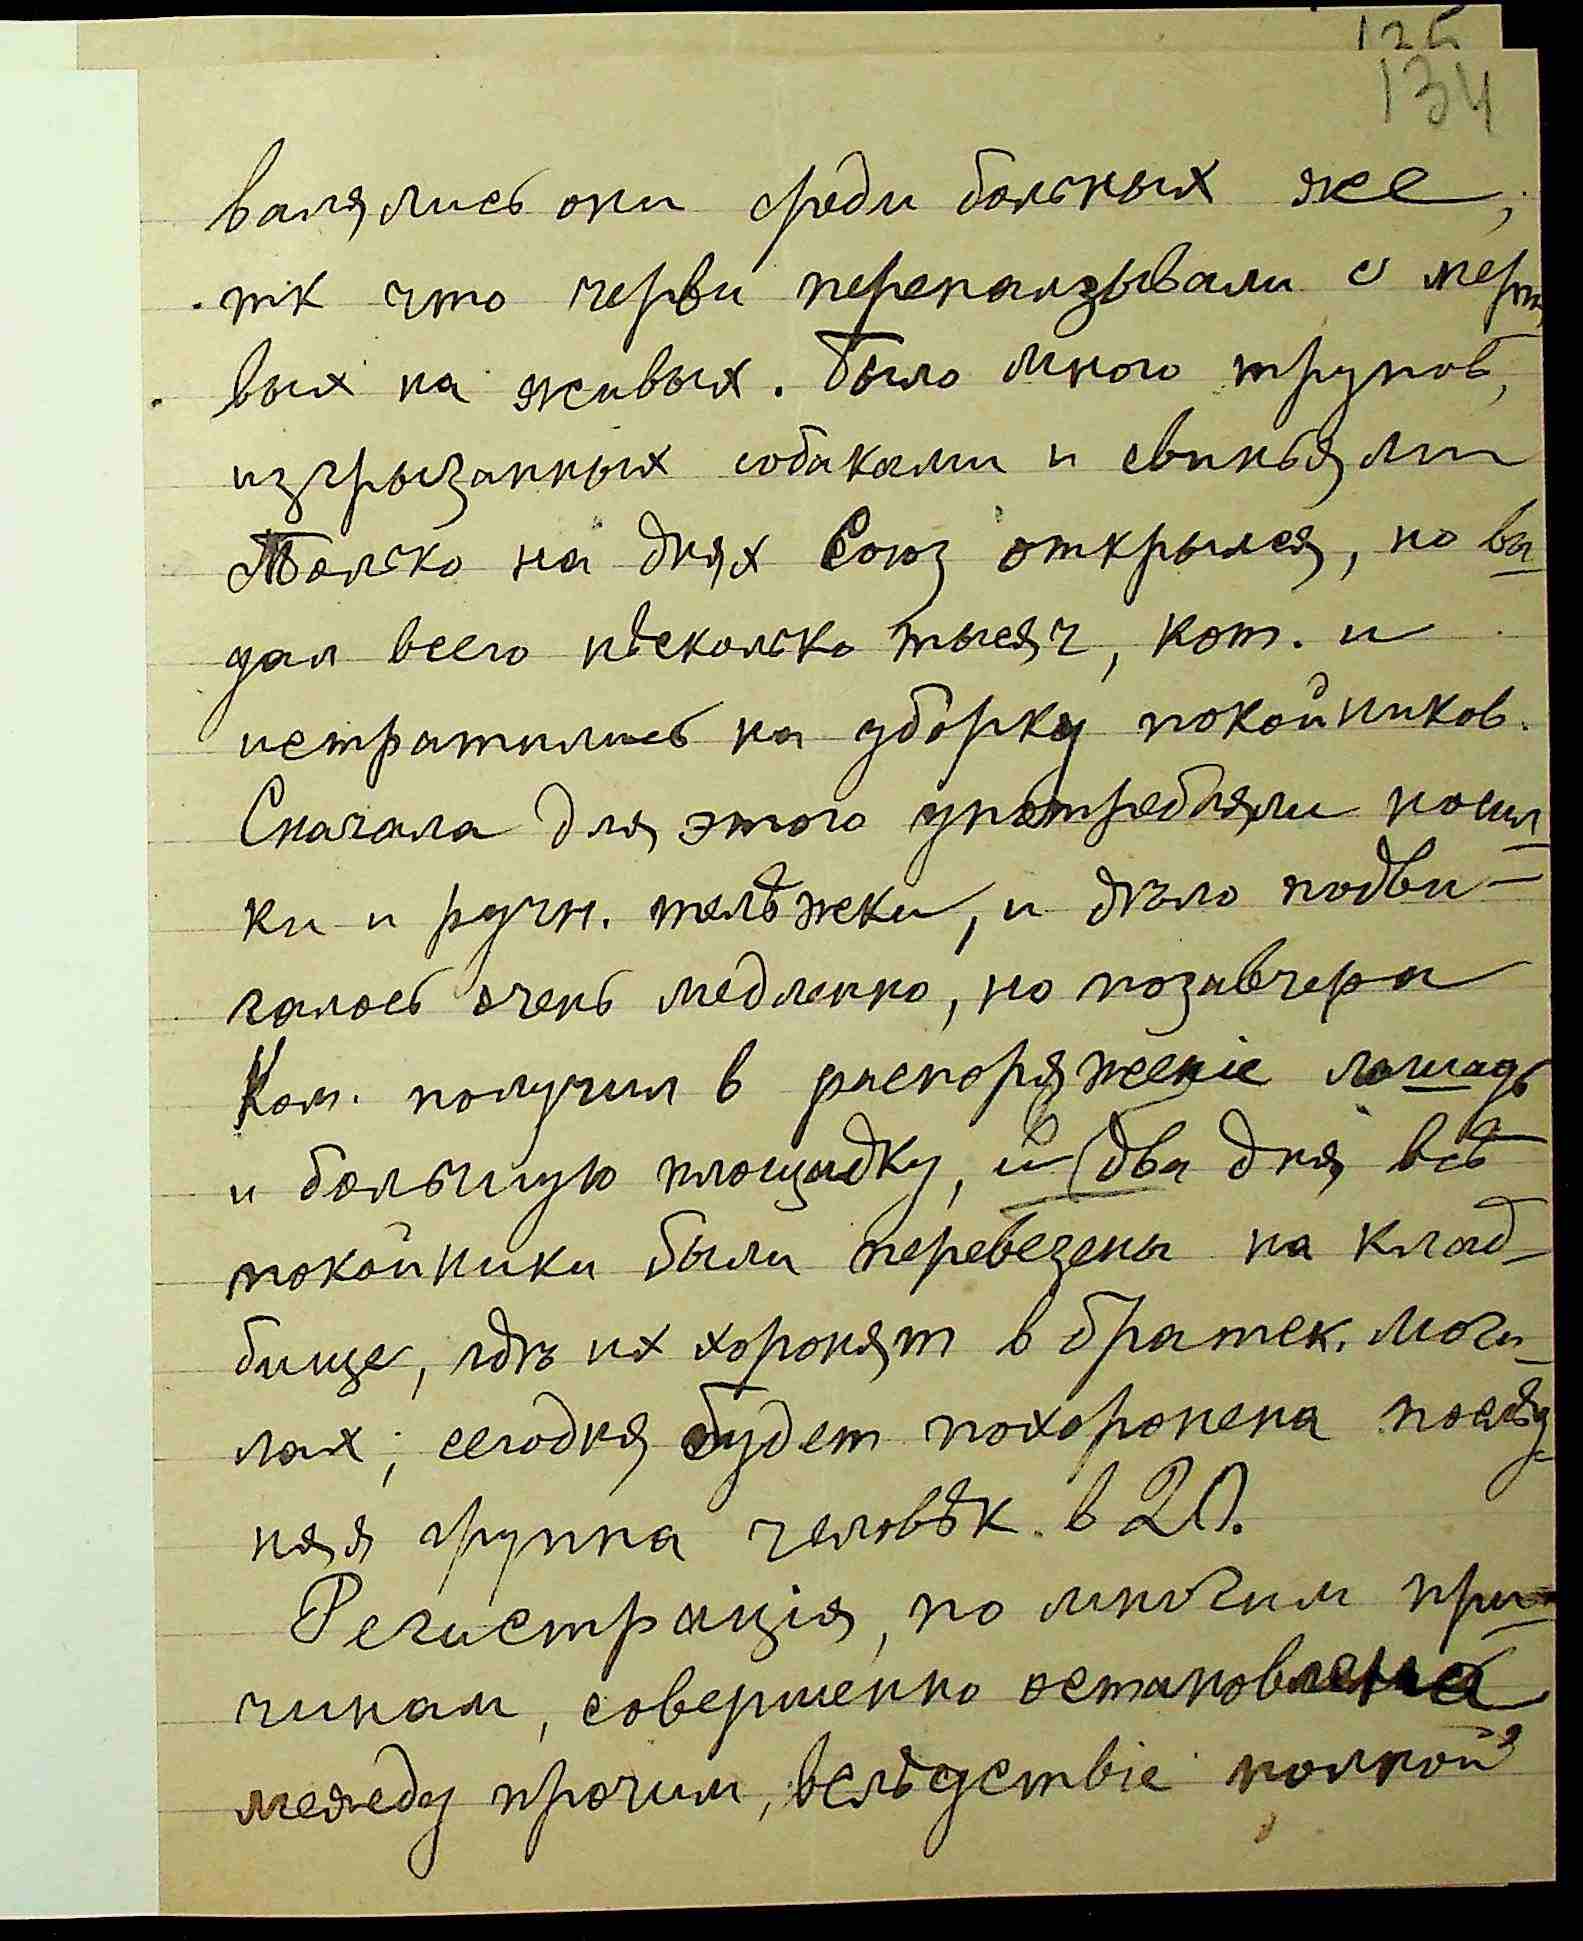 125
134
валялись они среди больных же,
тк что черви переползывали с мерт
вых на живых. Было много трупов,
изгрызанных собаками и свиньями
Только на днях Союз открылся, но вы
дал всего нѣсколько тысяч, кот. и
истратились на уборку покойников.
Сначала для этого употребляли носил
ки и ручн. телѣжки, и дѣло подви-
галось очень медленно, но позавчера
Ком. получил в распоряженіе лошадь
и большую площадку, и в два дня всѣ
покойники были перевезены на клад-
бище, гдѣ их хоронят в братск. моги-
лах; сегодня будет похоронена послѣд-
няя группа человѣк в 20.
Регистрація, по многим при-
чинам, совершенно остановлена
между прочим, вслѣдствіе полной